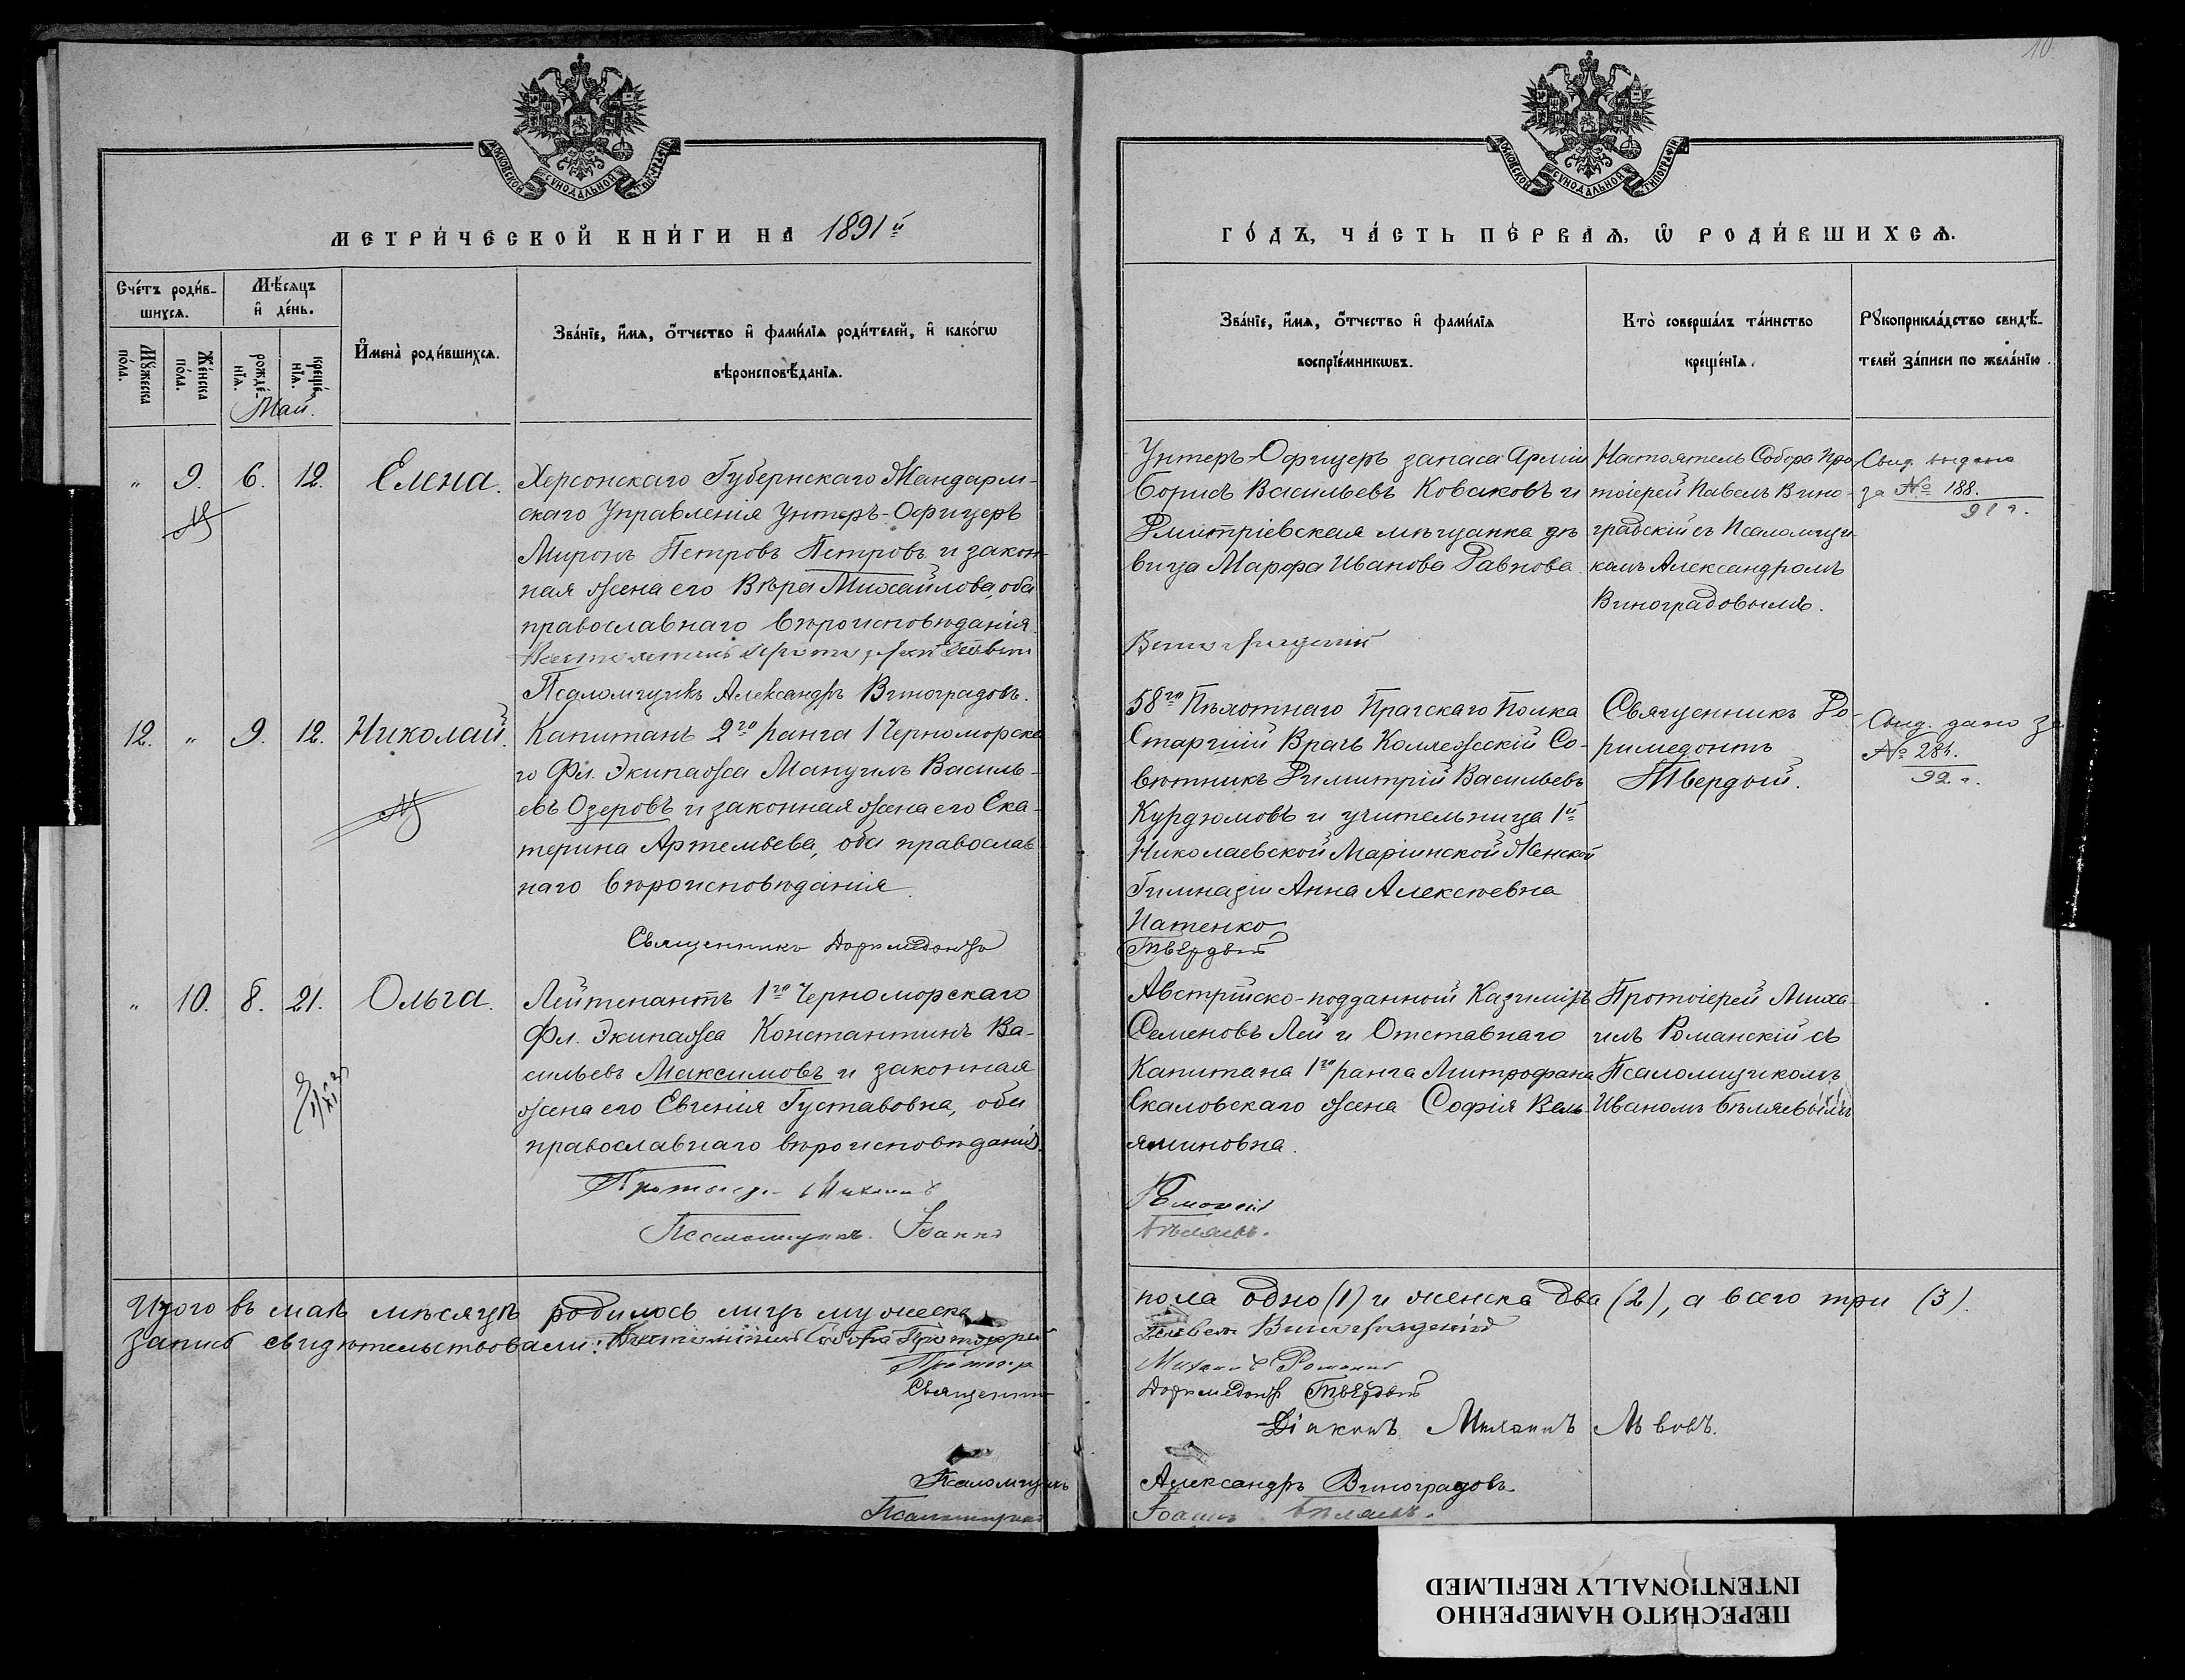 10
МОСКОВСКОЙ СѴНОДАЛЬНОЙ ТИПОГРАФІИ
МОСКОВСКОЙ СѴНОДАЛЬНОЙ ТИПОГРАФІИ
МЕТРИ́ЧЕСКОЙ КНИ́ГИ НА 1891й
ГО́ДЪ, ЧА́СТЬ ПЕ́РВАѦ, Ѡ҆ РОДИ́ВШИХСѦ.
Сче́тъ роди́в-
шихсѧ.
Мѣ́сѧцъ
и҆ де́нь.
Мꙋ́жеска
по́ла.
Же́нска
по́ла.
рожде́-
нїѧ.
креще́-
нїѧ.
И҆мена̀ роди́вшихсѧ.
Зва́нїе, и҆́мѧ, ѻ҆́тчество и҆ фами́лїѧ роди́телей, и҆ како́гѡ
вѣроисповѣ́данїѧ.
Зва́нїе, и҆́мѧ, ѻ҆́тчество и҆ фами́лїѧ
воспрїе́мникѡвъ.
Кто̀ соверша́лъ та́инство
креще́нїѧ.
Рꙋкоприкла́дство свидѣ́-
телей за́писи по жела́нїю.
Май.
" 9. 6. 12. Елена.
Херсонскаго Губернскаго Жандарм-
скаго Управленія Унтеръ-Офицеръ
Миронъ Петровъ Петровъ и закон-
ная жена его Вѣра Михайлова, оба
православнаго вѣроисповѣданія.
Псаломщикъ Александръ Виноградовъ.
Унтеръ-Офицеръ запаса Арміи
Борисъ Васильевъ Коваковъ и
Дмитріевская мѣщанка дѣ
вица Марфа Иванова Равнова
Настоятель Собора Про
тоіерей Павелъ Вино-
градскій съ Псаломщи
комъ Александромъ
Виноградовымъ.
Свид. выдано
за № 188.
91 г.
12. " 9. 12. Николай.
Капитанъ 2го ранга 1 Черноморска
го Фл. Экипажа Мануилъ Василь-
евъ Озеровъ и законная жена его Ека-
терина Артемьева, оба православ
наго вѣроисповѣданія.
Священникъ Доримедонтъ
58го Пѣхотнаго Прагскаго Полка
Старшій Врачъ Коллежскій Со-
вѣтникъ Димитрій Васильевъ
Курдюмовъ и учительница 1й
Николаевской Маріинской Женской
Гимназіи Анна Алексѣевна
Ипатенко
Твердый
Священникъ До-
римедонтъ
Твердый.
Свид. дано за
№ 284.
92 г.
" 10. 8. 21. Ольга.
Лейтенантъ 1го Черноморскаго
Фл. Экипажа Константинъ Ва-
сильевъ Максимовъ и законная
жена его Евгенія Густавовна, оба
православнаго вѣроисповѣданія.
Протоіер. Михаилъ
Псаломщикъ Іоаннъ
Австрійско-подданный Казиміръ
Семеновъ Лей и Отставнаго
Капитана 1го ранга Митрофана
Скаловскаго жена Софія Вень-
яминовна.
Романскій
Бѣляевъ.
Протоіерей Миха-
илъ Романскій съ
Псаломщикомъ
Иваномъ Бѣляевымъ
Итого въ маѣ мѣсяцѣ родилось лицъ мужеска
пола одно (1) и женска два (2), а всего три (3).
Запись свидѣтельствовали: Настоятель Собора Протоіерей
Павелъ Виноградскій
Протоіер.
Михаилъ Романскій
Священникъ
Доримедонтъ Твердый
Діаконъ Михаилъ Львовъ.
Псаломщикъ
Александръ Виноградовъ
Псаломщикъ
Іоаннъ Бѣляевъ.
ПЕРЕСНЯТО НАМЕРЕННО
INTENTIONALLY REFILMED